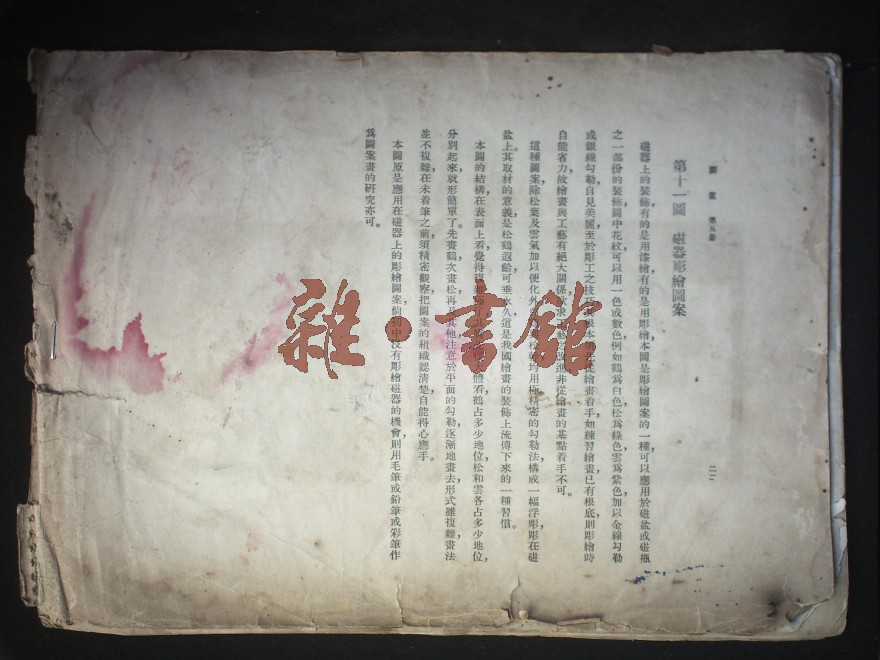 圖畫 第五册
第十一圖 磁器彫繪圖案
磁器上的裝飾有的是用漆繪，有的是用彫繪，本圖是彫繪圖案的一種，可以應用於磁盆或磁瓶
之一部份的裝飾。圖中花紋可以用一色或數色，例如鶴爲白色，松爲綠色，雲爲紫色，加以金線勾勒
或銀線勾勒，自見美麗。至於彫工之
從繪畫着手，如練習繪畫已有根底，則彫繪時
自能省力，故繪畫與工藝有絕大關係，欲求
改進非從繪畫的基點着手不可。
這種圖案，除松葉及雲氣加以便化外，
均用極精密的勾勒法，構成一幅浮彫，彫在磁
盆上。其取材的意義是松鶴遐齡，可垂永久，這是我國繪畫的裝飾上流傳下來的一種習慣。
本圖的結構，在表面上看，覺得複雜
體看，鶴占多少地位，松和雲各占多少地位，
分別起來，就形簡單了。先畫鶴，次畫松，再及其他，注意於平面的勾勒，逐漸地畫去，形式雖複雜，畫法
並不複雜，在未着筆之前，須精密觀察，把圖案的組織認清楚，自能得心應手。
本圖原是應用在磁器上的彫繪圖案，倘初中沒有彫繪磁器的機會，則用毛筆或鉛筆或彩筆作
爲圖案畫的研究亦可。
二二
雜·書館